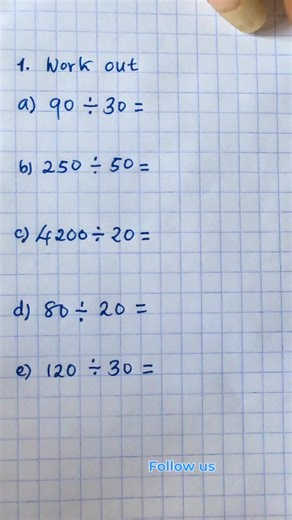 1. Work out
a) 90 ÷ 30 =
b) 250 ÷ 50 =
c) 4200 ÷ 20 =
d) 80 ÷ 20 =
e) 120 ÷ 30 =
Follow us